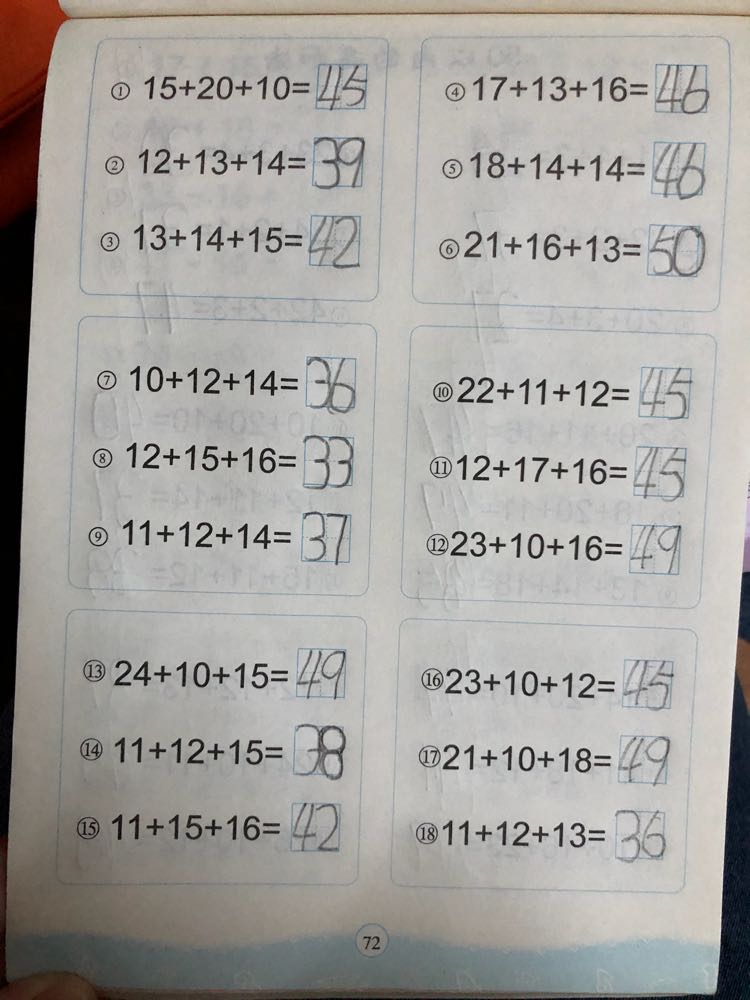 ① 15+20+10=45
② 12+13+14=39
③ 13+14+15=42
④ 17+13+16=46
⑤ 18+14+14=46
⑥ 21+16+13=50
⑦ 10+12+14=36
⑧ 12+15+16=33
⑨ 11+12+14=37
⑩ 22+11+12=45
⑪ 12+17+16=45
⑫ 23+10+16=49
⑬ 24+10+15=49
⑭ 11+12+15=38
⑮ 11+15+16=42
⑯ 23+10+12=45
⑰ 21+10+18=49
⑱ 11+12+13=36
72